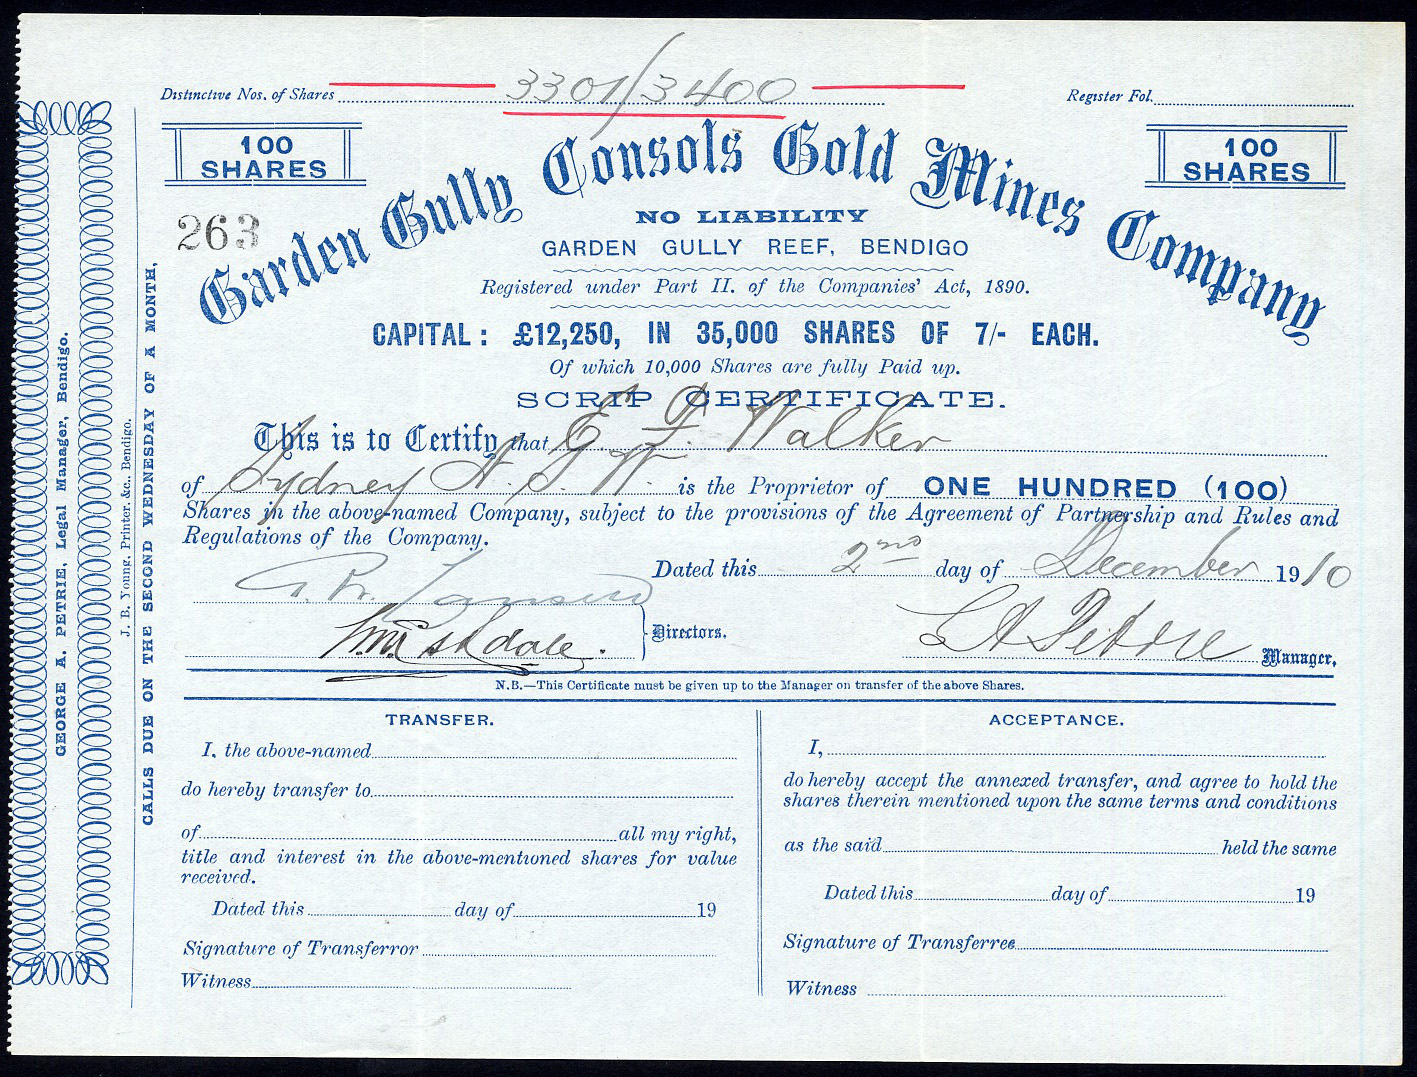 Distinctive Nos. of Shares 3301/3400 Register Fol.
100 SHARES
100 SHARES
263
Garden Gully Consols Gold Mines Company
NO LIABILITY
GARDEN GULLY REEF, BENDIGO
Registered under Part II. of the Companies' Act, 1890.
CAPITAL: £12,250, IN 35,000 SHARES OF 7/- EACH.
Of which 10,000 Shares are fully Paid up.
SCRIP CERTIFICATE.
This is to Certify that E F. Walker
of Sydney N. S. W. is the Proprietor of ONE HUNDRED (100)
Shares in the above-named Company, subject to the provisions of the Agreement of Partnership and Rules and
Regulations of the Company.
Dated this 2nd day of December 1910
Directors.
Manager.
N.B.—This Certificate must be given up to the Manager on transfer of the above Shares.
TRANSFER.
I, the above-named
do hereby transfer to
of all my right,
title and interest in the above-mentioned shares for value
received.
Dated this day of 19
Signature of Transferror
Witness
ACCEPTANCE.
I,
do hereby accept the annexed transfer, and agree to hold the
shares therein mentioned upon the same terms and conditions
as the said held the same
Dated this day of 19
Signature of Transferree
Witness
GEORGE A. PETRIE, Legal Manager, Bendigo.
J. B. Young, Printer, &c., Bendigo.
CALLS DUE ON THE SECOND WEDNESDAY OF A MONTH,